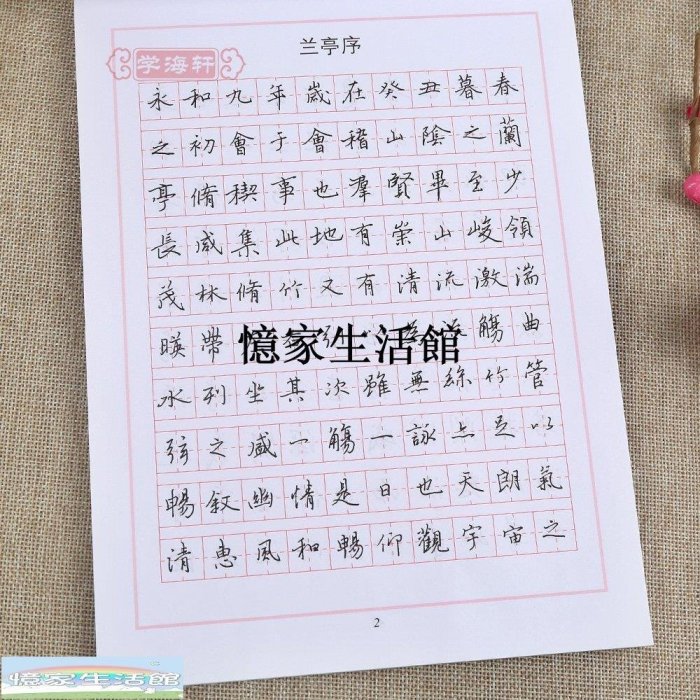 兰亭序
学海轩
永和九年歲在癸丑暮春
之初會于會稽山陰之蘭
亭脩稧事也羣賢畢至少
長咸集此地有崇山峻領
茂林脩竹又有清流激湍
暎帶觴曲
憶家生活館
水列坐其次雖無絲竹管
弦之盛一觴一詠亦足以
暢叙幽情是日也天朗氣
清惠風和暢仰觀宇宙之
2
憶家生活館